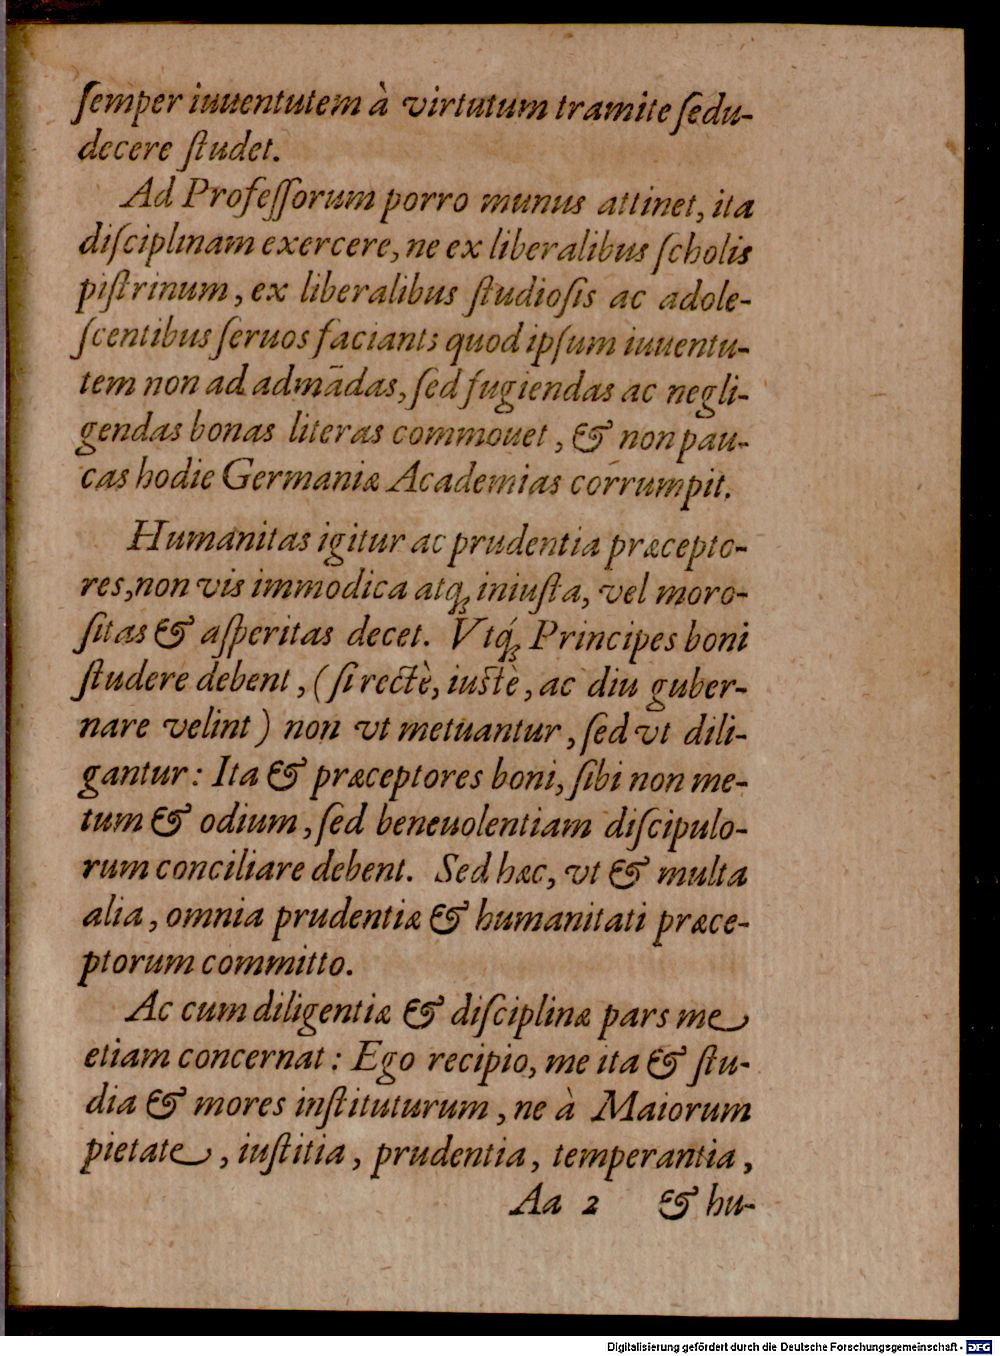 ſemper iuuentutem à virtutum tramite ſedu-
decere ſtudet.
Ad Profeſſorum porro munus attinet, ita
diſciplinam exercere, ne ex liberalibus ſcholis
piſtrinum, ex liberalibus ſtudioſis ac adole-
ſcentibus ſeruos faciant: quod ipſum iuuentu-
tem non ad admādas, ſed fugiendas ac negli-
gendas bonas literas commouet, & non pau-
cas hodie Germaniæ Academias corrumpit.
Humanitas igitur ac prudentia præcepto-
res, non vis immodica atq; iniuſta, vel moro-
ſitas & aſperitas decet. Vtq́; Principes boni
ſtudere debent, (ſi rectè, iustè, ac diu guber-
nare velint) non vt metuantur, ſed vt dili-
gantur: Ita & præceptores boni, ſibi non me-
tum & odium, ſed beneuolentiam diſcipulo-
rum conciliare debent. Sed hæc, vt & multa
alia, omnia prudentiæ & humanitati præce-
ptorum committo.
Ac cum diligentiæ & diſciplinæ pars me
etiam concernat: Ego recipio, me ita & ſtu-
dia & mores inſtituturum, ne à Maiorum
pietate, iuſtitia, prudentia, temperantia,
Aa 2 & hu-
Digitalisierung gefördert durch die Deutsche Forschungsgemeinschaft - DFG